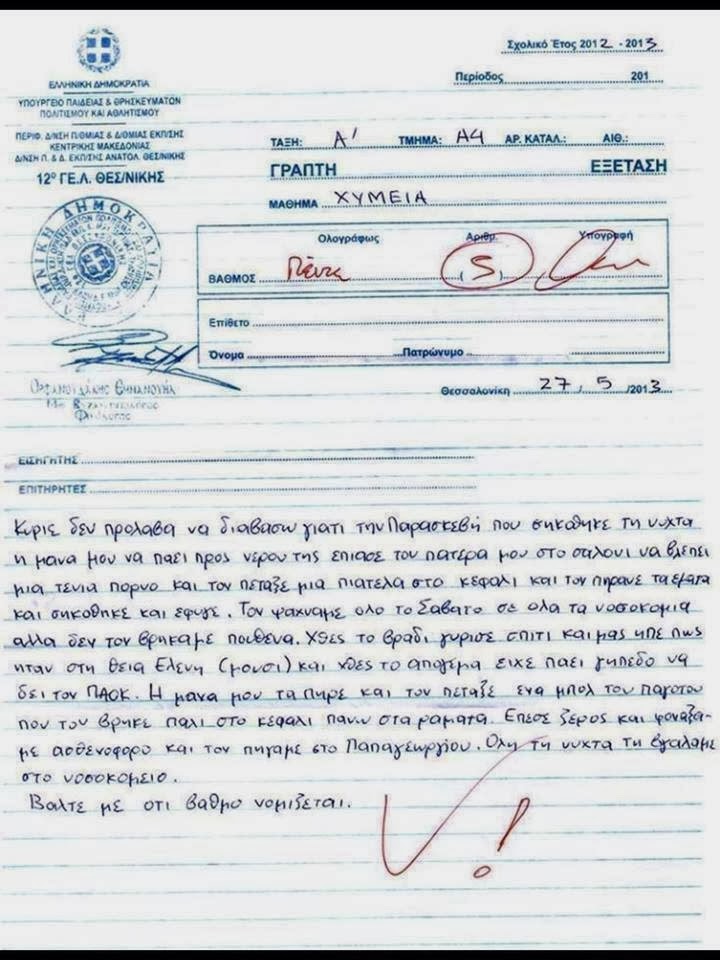 Σχολικό Έτος 2012 - 2013
Περίοδος 201
ΕΛΛΗΝΙΚΗ ΔΗΜΟΚΡΑΤΙΑ
ΥΠΟΥΡΓΕΙΟ ΠΑΙΔΕΙΑΣ & ΘΡΗΣΚΕΥΜΑΤΩΝ
ΠΟΛΙΤΙΣΜΟΥ ΚΑΙ ΑΘΛΗΤΙΣΜΟΥ
ΠΕΡΙΦ. Δ/ΝΣΗ Π/ΘΜΙΑΣ & Δ/ΘΜΙΑΣ ΕΚΠ/ΣΗΣ
ΚΕΝΤΡΙΚΗΣ ΜΑΚΕΔΟΝΙΑΣ
Δ/ΝΣΗ Π. & Δ. ΕΚΠ/ΣΗΣ ΑΝΑΤΟΛ. ΘΕΣ/ΝΙΚΗΣ
12ο ΓΕ.Λ. ΘΕΣ/ΝΙΚΗΣ
ΤΑΞΗ: Α' ΤΜΗΜΑ: Α4 ΑΡ. ΚΑΤΑΛ.: ΑΙΘ.:
ΓΡΑΠΤΗ ΕΞΕΤΑΣΗ
ΜΑΘΗΜΑ ΧΥΜΕΙΑ
ΕΛΛΗΝΙΚΗ ΔΗΜΟΚΡΑΤΙΑ
Ολογράφως Αριθμ. Υπογραφή
ΒΑΘΜΟΣ Πέντε (5)
Επίθετο
Όνομα Πατρώνυμο
Θεσσαλονίκη 27, 5 /2013
ΕΙΣΗΓΗΤΗΣ
ΕΠΙΤΗΡΗΤΕΣ
Κυριε δεν προλαβα να διαβασω γιατι την Παρασκεβή που σηκοθηκε τη νυχτα
η μανα μου να παει προς νερου της επιασε τον πατερα μου στο σαλονι να βλεπει
μια τενια πορνο και τον πεταξε μια πιατελα στο κεφαλι και τον πηρανε τα εματα
και σηκοθηκε και εφυγε. Τον ψαχναμε ολο το Σαβατο σε ολα τα νοσοκομια
αλλα δεν τον βρηκαμε πουθενα. Χθες το βραδι γυρισε σπιτι και μας ηπε πως
ηταν στη θεια Ελενη (μουσι) και χθες το απογεμα ειχε παει γηπεδο να
δει τον ΠΑΟΚ. Η μανα μου τα πηρε και τον πεταξε ενα μπολ του παγοτου
που τον βρηκε παλι στο κεφαλι πανω στα ραματα. Επεσε ξερος και φοναξα-
με ασθενοφορο και τον πηγαμε στο Παπαγεωργιου. Ολη τη νυχτα τη βγαλαμε
στο νοσοκομειο.
Βαλτε με οτι βαθμο νομιζεται.
!